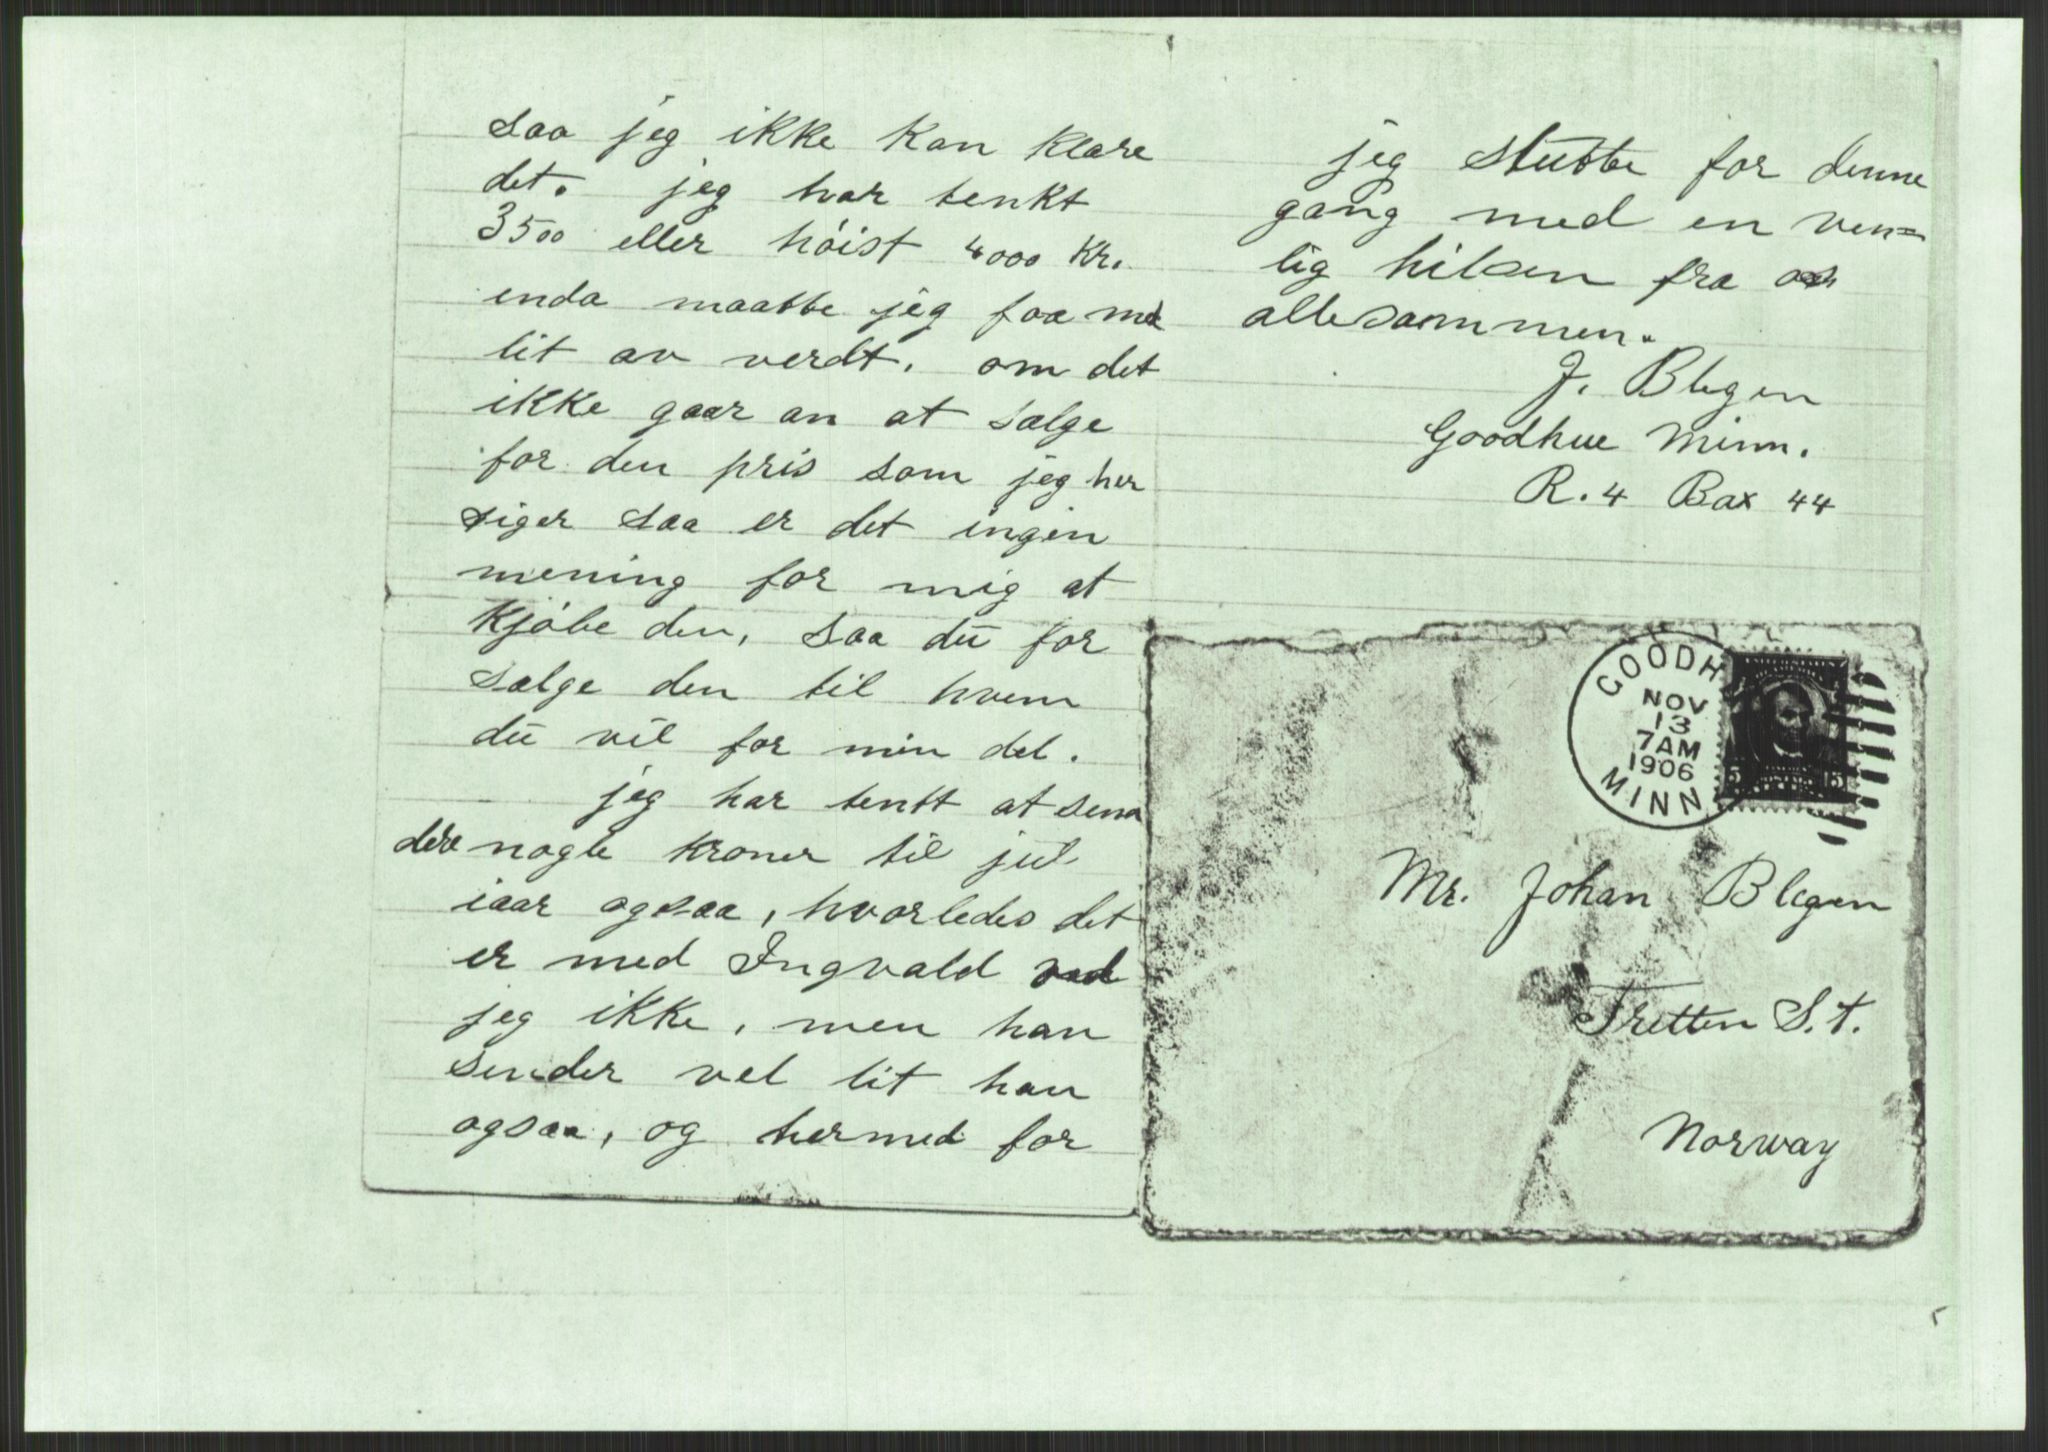 saa jeg ikke kan klare
det. jeg har tenkt
3500 eller höist 4000 kr.
enda maatte jeg faa med
lit av verdt. om det
ikke gaar an at sælge
for den pris som jeg her
siger saa er det ingen
mening for mig at
kjöbe den, saa du for
sælge den til hvem
du vil for min del.
jeg har tentt at senn
dere nogle kroner til jul
iaar ogsaa, hvorledes det
er med Ingvald ved
jeg ikke, men han
sender vel lit han
ogsaa, og hermed for
jeg slutte for denne
gang med en ven=
lig hilsen fra os
allesammen.
J. Blegen
Goodhue Minn.
R. 4 Box 44
GOODH
NOV
13
7AM
1906
MINN
Mr. Johan Blegen
Tretten S.t.
Norway